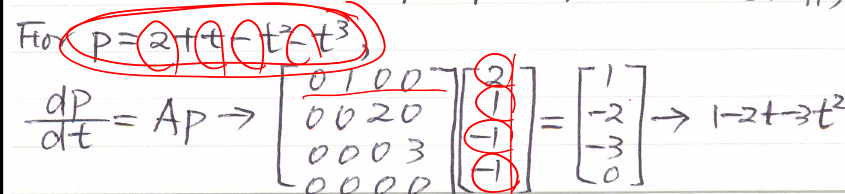 For p = 2 + t - t² - t³,
dp/dt = Ap → [0 1 0 0; 0 0 2 0; 0 0 0 3; 0 0 0 0] [2; 1; -1; -1] = [1; -2; -3; 0] → 1-2t-3t²